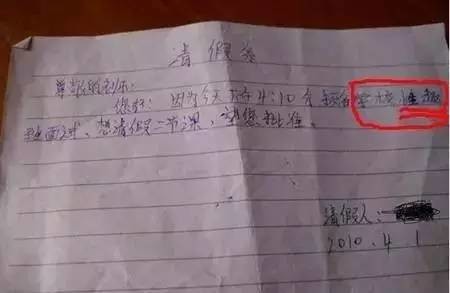 请假条
尊敬的老师:
您好! 因为今天下午4:10分 我在学校性趣
想请假二节课, 望您批准。
请假人:
2010.4.1